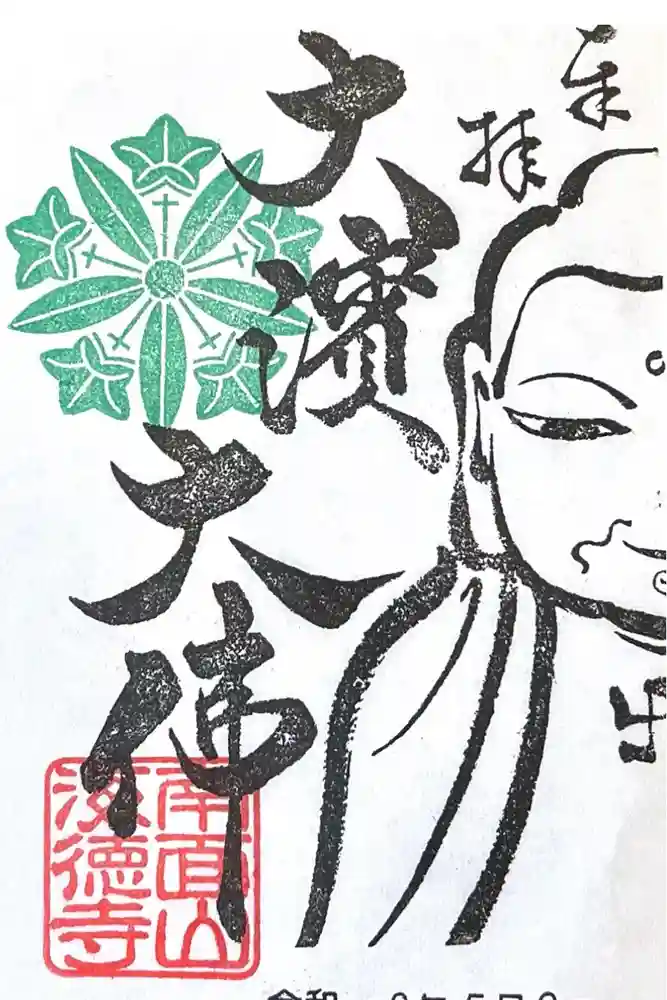 奉拝
大濱
大佛
南面山
海徳寺
令和